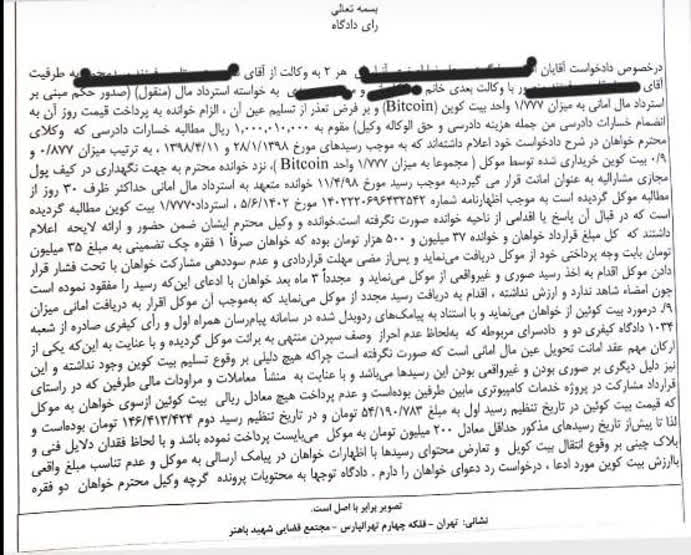 بسمه تعالی
رای دادگاه
درخصوص دادخواست آقایان هر ۲ به وکالت از آقای به طرفیت
آقای با وکالت بعدی خانم و به خواسته استرداد مال (منقول) (صدور حکم مبنی بر
استرداد مال امانی به میزان ۱/۷۷۷ واحد بیت کوین (Bitcoin) و بر فرض تعذر از تسلیم عین آن ، الزام خوانده به پرداخت قیمت روز آن به
انضمام خسارات دادرسی من جمله هزینه دادرسی و حق الوکاله وکیل) مقوم به ۱,۰۰۰,۰۱۰,۰۰۰ ریال مطالبه خسارات دادرسی که وکلای
محترم خواهان در شرح دادخواست خود اعلام داشته‌اند که به موجب رسیدهای مورخ ۲۸/۱/۱۳۹۸ و ۱۳۹۸/۴/۱۱ ، به ترتیب میزان ۰/۸۷۷ و
۰/۹ بیت کوین خریداری شده توسط موکل ( مجموعا به میزان ۱/۷۷۷ واحد Bitcoin )، نزد خوانده محترم به جهت نگهداری در کیف پول
مجازی مشارالیه به عنوان امانت قرار می گیرد.به موجب رسید مورخ ۱۱/۴/۹۸ خوانده متعهد به استرداد مال امانی حداکثر ظرف ۳۰ روز از
مطالبه موکل گردیده است به موجب اظهارنامه شماره ۱۴۰۲۲۲۰۶۹۶۴۳۲۵۴۲ مورخ ۵/۶/۱۴۰۲ ، استرداد۱/۷۷۷۰ بیت کوین مطالبه گردیده
است که در قبال آن پاسخ یا اقدامی از ناحیه خوانده صورت نگرفته است.خوانده و وکیل محترم ایشان ضمن حضور و ارائه لایحه اعلام
داشتند که کل مبلغ قرارداد خواهان و خوانده ۳۷ میلیون و ۵۰۰ هزار تومان بوده که خواهان صرفاً ۱ فقره چک تضمینی به مبلغ ۳۵ میلیون
تومان بابت وجه پرداختی خود از موکل دریافت می‌نماید و پس‌از مضی مهلت قراردادی و عدم سوددهی مشارکت خواهان با تحت فشار قرار
دادن موکل اقدام به اخذ رسید صوری و غیرواقعی از موکل می‌نماید و مجدداً ۳ ماه بعد خواهان با ادعای این‌که رسید را مفقود نموده است
چون امضاء شاهد ندارد و ارزش نداشته ، اقدام به دریافت رسید مجدد از موکل می‌نماید که به‌موجب آن موکل اقرار به دریافت امانی میزان
۹/. درمورد بیت کوئین از خواهان می‌نماید و با استناد به پیامک‌های ردوبدل شده در سامانه پیام‌رسان همراه اول و رأی کیفری صادره از شعبه
۱۰۳۴ دادگاه کیفری دو و دادسرای مربوطه که به‌لحاظ عدم احراز وصف سپردن منتهی به برائت موکل گردیده و با عنایت به این‌که یکی از
ارکان مهم عقد امانت تحویل عین مال امانی است که صورت نگرفته است چراکه هیچ دلیلی بر وقوع تسلیم بیت کوین وجود نداشته و این
نیز دلیل دیگری بر صوری بودن و غیرواقعی بودن این رسیدها می‌باشد و با عنایت به منشأ معاملات و مراودات مالی طرفین که در راستای
قرارداد مشارکت در پروژه خدمات کامپیوتری مابین طرفین بوده‌است و عدم پرداخت هیچ معادل ریالی بیت کوئین ازسوی خواهان به موکل
که قیمت بیت کوئین در تاریخ تنظیم رسید اول به مبلغ ۵۴/۱۹۰/۷۸۳ تومان و در تاریخ تنظیم رسید دوم ۱۴۶/۴۱۳/۴۲۴ تومان بوده‌است و
لذا تا پیش‌از تاریخ رسیدهای مذکور حداقل معادل ۲۰۰ میلیون تومان به موکل می‌بایست پرداخت نموده باشد و با لحاظ فقدان دلایل فنی و
بلاک چینی بر وقوع انتقال بیت کویل و تعارض محتوای رسیدها با اظهارات خواهان در پیامک ارسالی به موکل و عدم تناسب مبلغ واقعی
باارزش بیت کوین مورد ادعا ، درخواست رد دعوای خواهان را دارم . دادگاه توجها به محتویات پرونده گرچه وکیل محترم خواهان دو فقره
تصویر برابر با اصل است.
نشانی: تهران - فلکه چهارم تهرانپارس - مجتمع قضایی شهید باهنر